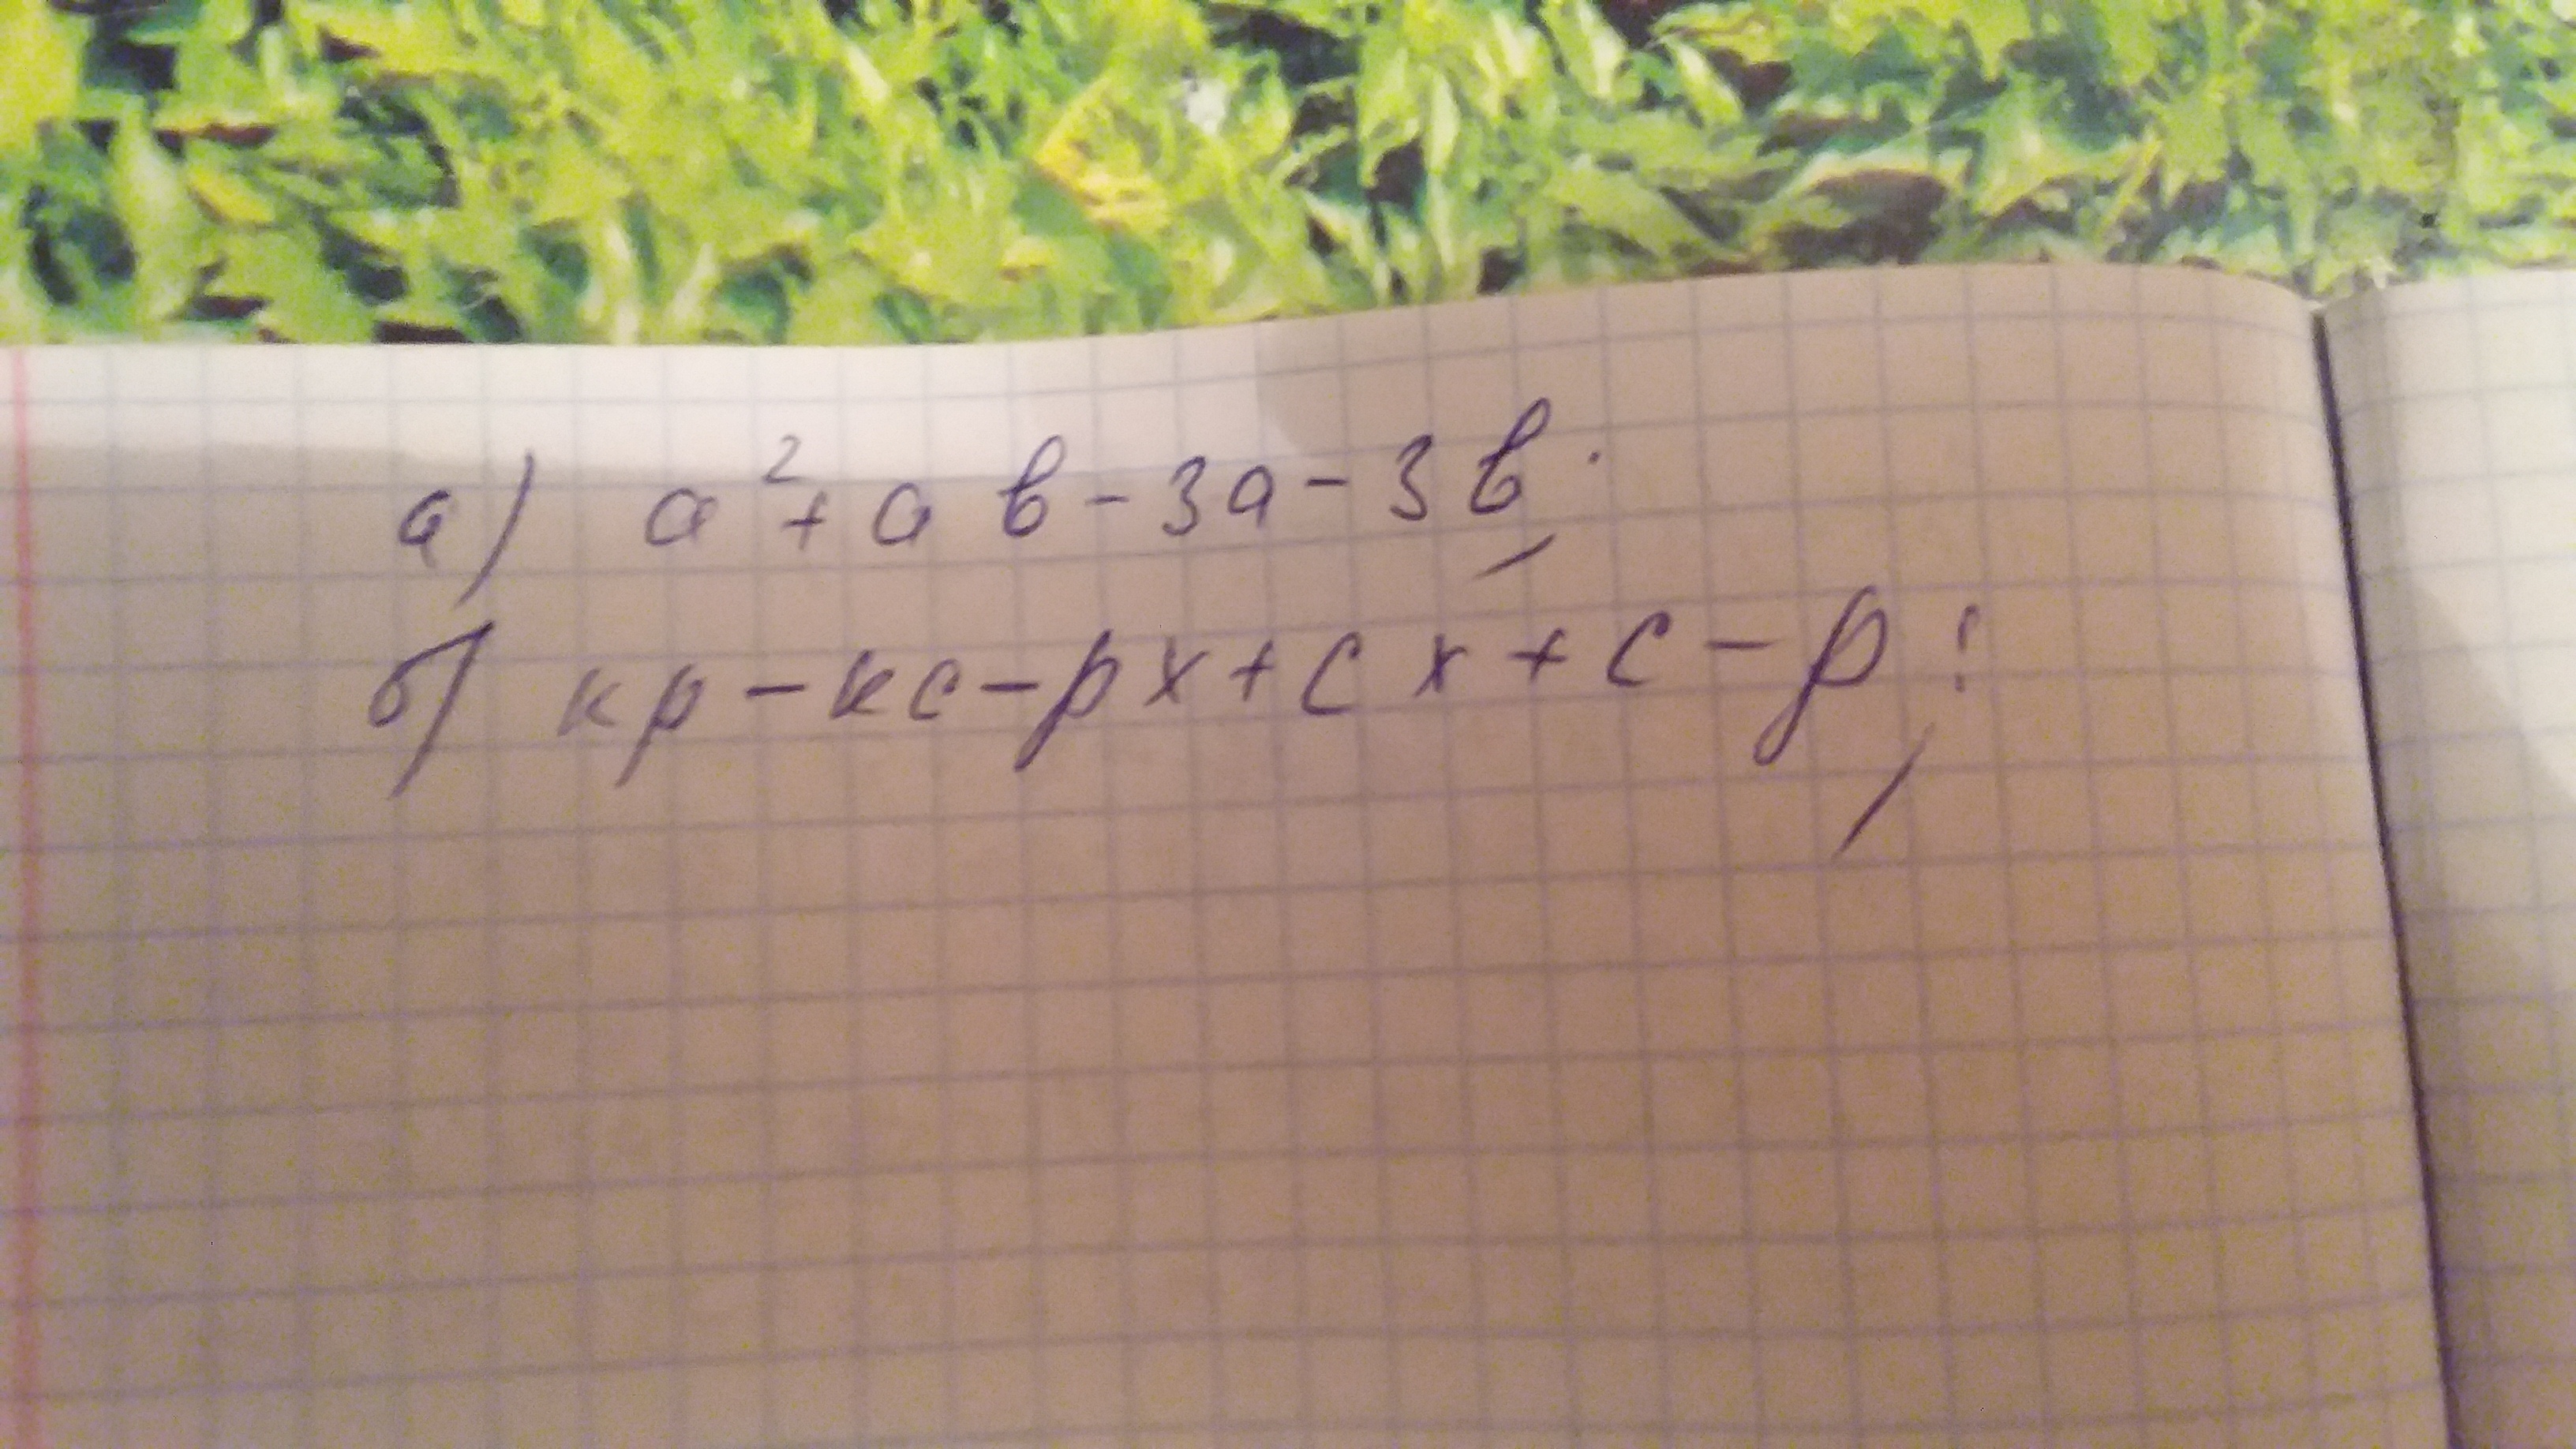 а) a²+aв-3a-3в;
б) кp-кc-px+cx+c-p;